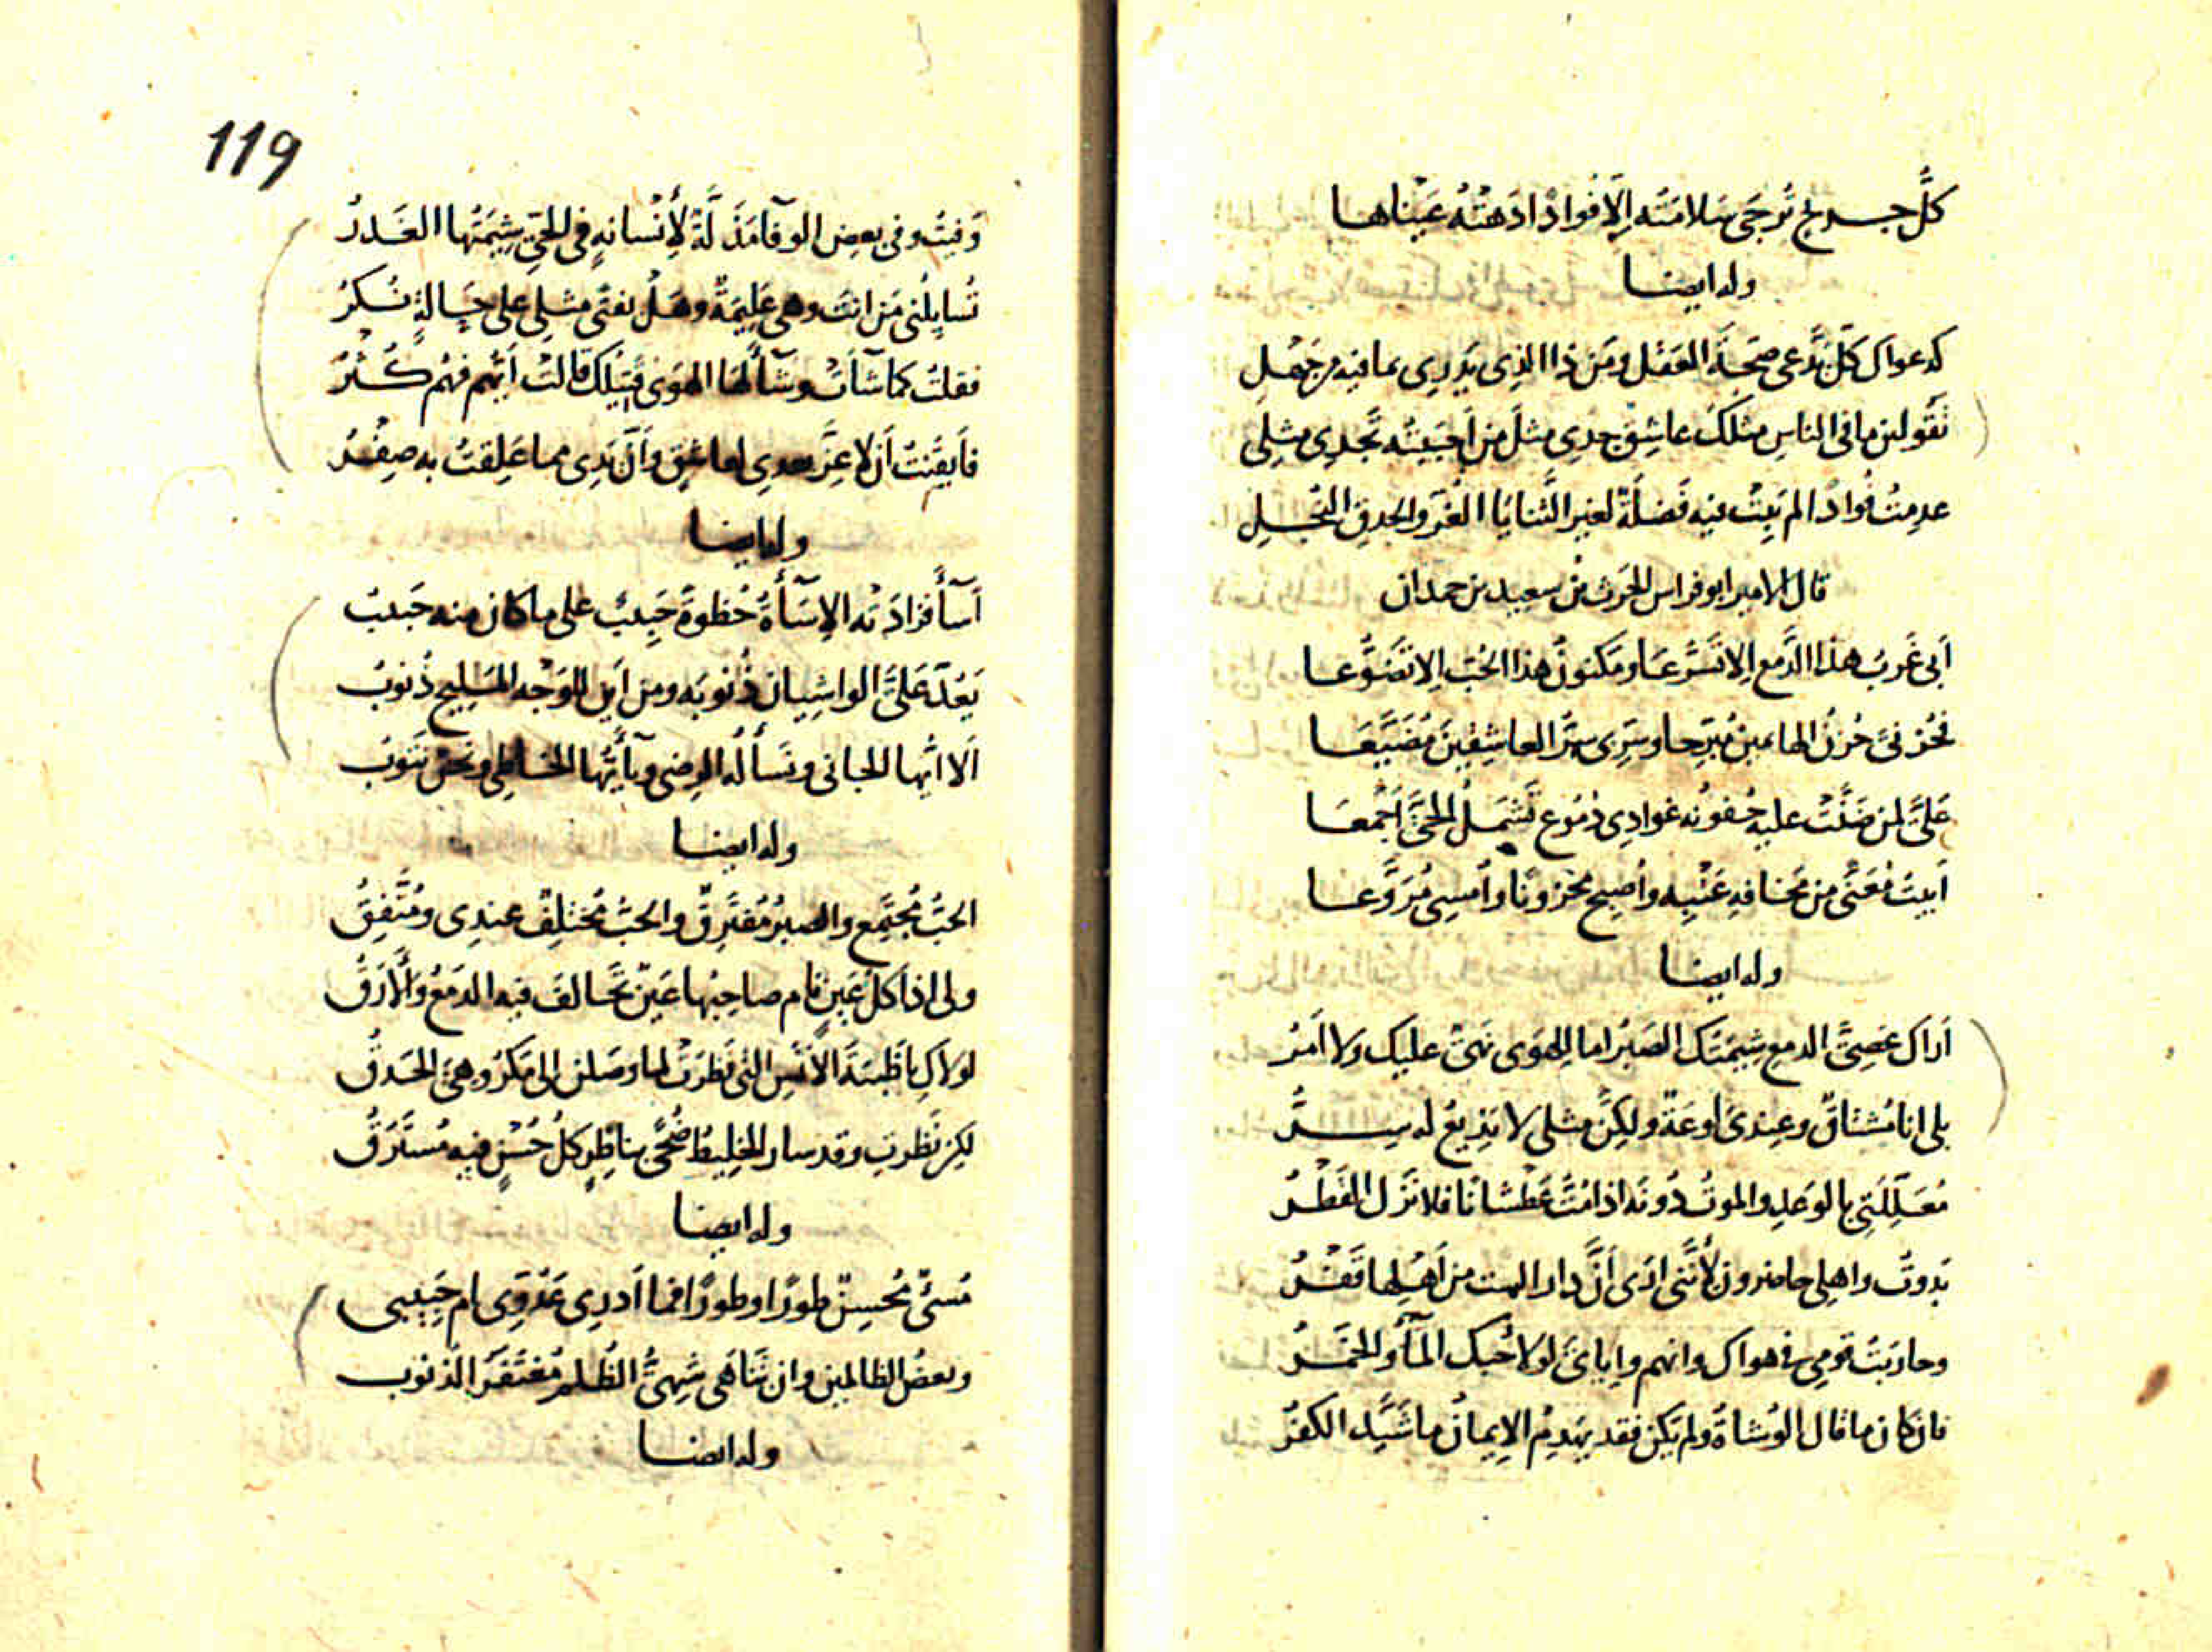 كلُّ جريح تُرجَى سَلامَتُه إلّا فؤادًا دَهَتْهُ عَيناها
وله ايضا
كدعواك كلٌّ يَدَّعى صِحَّةَ العَقْل ومَن ذا الذي يَدرى بما فيه من جَهْل
تقولين ما في الناس مثلك عاشِق جِدى مثلَ من أَحبَبتُه تجدى مثلى
عدمتُ فؤادًا لم تَبِتْ فيه فَضلَةٌ لغير الثَّنايَا الغُرّ والحدق النُّجلِ
قال الامير ابو فراس الحَرث بن سعيد بن حمدان
أبى غَربُ هذا الدَّمعِ إلا تَسَرُّعا ومَكنونُ هذا الحُبّ إلا تَضَوُّعا
فحُزنىَ حُزنُ الهائمين مُبَرِّحا وسَرِى سِرُّ العاشِقِينَ مُضَيَّعَا
عَلىَّ لمن ضَنَّتْ عليه جُفونُه غوادِى دُمُوع تَشمَلُ الحىَّ أَجْمعَا
أَبيتُ مُعَنًّى من مخافه عَتْبِه وأُصبِح محزونًا وأُمسِى مُرَوَّعا
وله ايضا
أراك عَصِىَّ الدمع شِيمَتك الصَبرُ اما للهَوى نَهىٌ عليك ولا أمرُ
بلى انا مُشتاقٌ وعِندىَ لوعَةٌ ولكِنَّ مثلى لا يُذيعُ له سِرُّ
مُعَلِّلَتِى بالوعدِ والموتُ دُونَه اذا مُتُّ عَطشانًا فلا نَزل القَطْرُ
بَدوتُ واهلى حاضرون لأنَّنى ارَى أنَّ دار الست من أَهلِها قَفْرُ
وحاربتُ قومى في هواك وانهم وإياىَ لولا حُبك المآءُ والخَمرُ
فان كان ما قال الوُشاةُ ولم يكن فقد يَهدِمُ الإيمانُ ما شَيَّد الكفرُ
119
وَفَيتُ وفى بعض الوفآ مَذَلَّةٌ لأِنْسانهٍ في الحيّ شِيمَتُها الغَدرُ
تُسايلُنى مَن انتَ وهى عَلِيمَةٌ وهَل بفتًى مثلى على حَالهِ نُكرُ
فقلت كما شآت وشآ لها الهوى قتيلُك قالت أيُّهم فهُم كُثْرُ
فأيقَنتُ أن لا عِزَّ بعدى لعاشق وأنَّ يَدِى مما عَلِقتُ به صِفْرُ
وله ايضا
أَسآ فزادَتْه الإسآأَةُ حُظوةً حَبِيبٌ على ما كان منه حَبيبُ
يَعُدّ عَلىَّ الواشِيان ذُنوبَه ومن أَين للوَجه المَليح ذُنوبُ
ألا أيها الجانى ونَسأَ له الرِضى ويأيُّها الخاطى ونحن نَتوبُ
وله ايضا
الحبُّ مُجتَمِع والصبرُ مُفتَرِقٌ والحبُّ مختلِفٌ عِندى ومُتَّفِقُ
ولى اذا كلُّ عَينٍ نام صاحِبُها عَينٌ تحالَفَ فيه الدمَعُ والأَرَقُ
لولاكِ يا ظَبيَةَ الأُنسِ التى نَظرَتْ لما وصلن الى مَكرُوهِىَ الحَدقُ
لكن نَظرتِ وقد سار الخليطُ ضُحًى بناظِرٍ كلُّ حُسْنٍ فيه مُستَرَقُ
وله ايضا
مُسىٌ مُحسِنٌ طورًا وطورًا فما أَدرى عَدُوّى ام حَبِيبى
وبعضُ الظالمين وان تَنَاهَى شَهِىُّ الظُلم مُغتَفَرُ الذنوب
وله ايضا